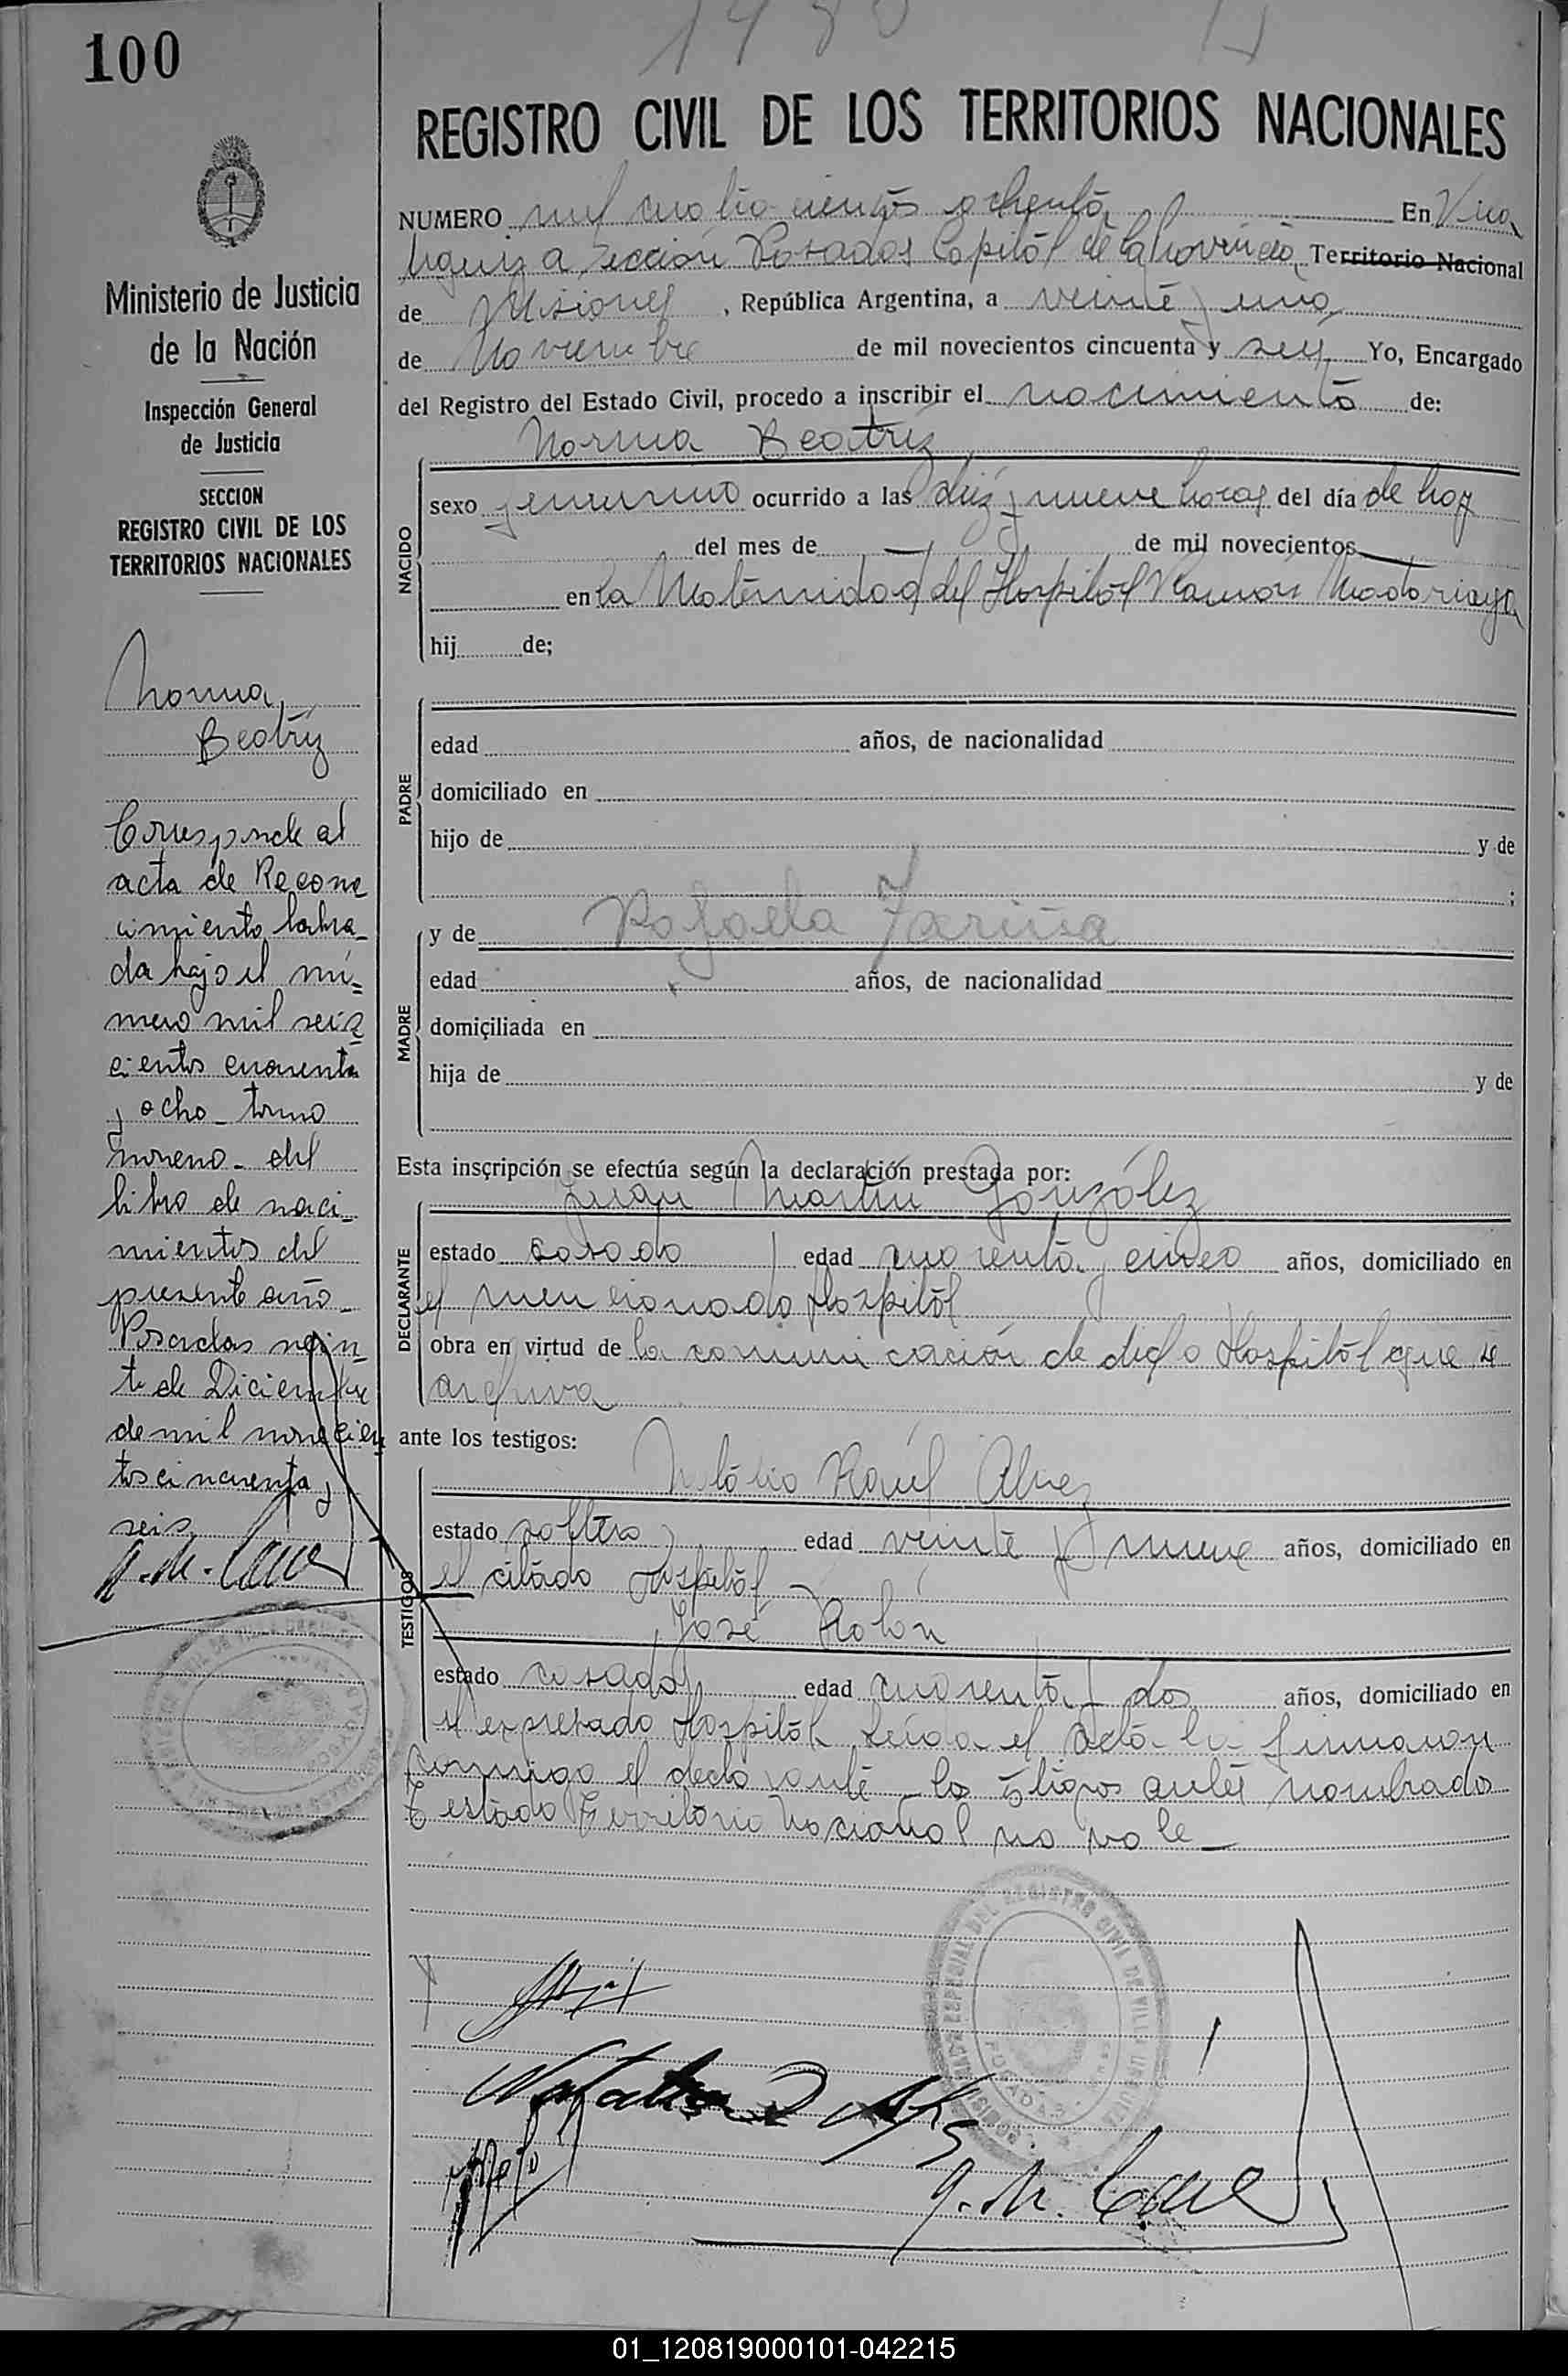 100
1480
REGISTRO CIVIL DE LOS TERRITORIOS NACIONALES
NUMERO mil cuatrocientos ochenta En Villa
Urquiza Sección Posadas Capital de la Provincia Territorio Nacional
de Misiones, República Argentina, a veinte y uno
de Noviembre de mil novecientos cincuenta y seis Yo, Encargado
del Registro del Estado Civil, procedo a inscribir el nacimiento de:
Norma Beatriz
NACIDO
sexo femenino ocurrido a las diez y nueve horas del día de hoy
del mes de — de mil novecientos —
en la Maternidad del Hospital Ramón Madariaga
hij de;
PADRE
edad años, de nacionalidad
domiciliado en
hijo de y de
;
MADRE
y de Rafaela Fariña
edad años, de nacionalidad
domiciliada en
hija de y de
Esta inscripción se efectúa según la declaración prestada por:
Juan Martin González
DECLARANTE
estado casado edad cuarenta y cinco años, domiciliado en
el mencionado Hospital
obra en virtud de la comunicación de dicho Hospital que se
archiva
ante los testigos:
TESTIGOS
Natalio Raúl Alvez
estado soltero edad veinte y nueve años, domiciliado en
el citado Hospital
José Rolón
estado casado edad cuarenta y dos años, domiciliado en
el expresado Hospital Leída el acta la firmaron
conmigo el declarante los testigos antes nombrados
Testado Territorio Nacional no vale—
Ministerio de Justicia
de la Nación
Inspección General
de Justicia
SECCION
REGISTRO CIVIL DE LOS
TERRITORIOS NACIONALES
Norma
Beatriz
Corresponde al
acta de Recono
cimiento labra_
da bajo el nú=
mero mil seis
cientos cuarenta
y ocho_ tomo
noveno_ del
libro de naci_
mientos del
presente año_
Posadas vein_
te de Diciembre
de mil novecien
tos cincuenta y
seis
01_120819000101-042215